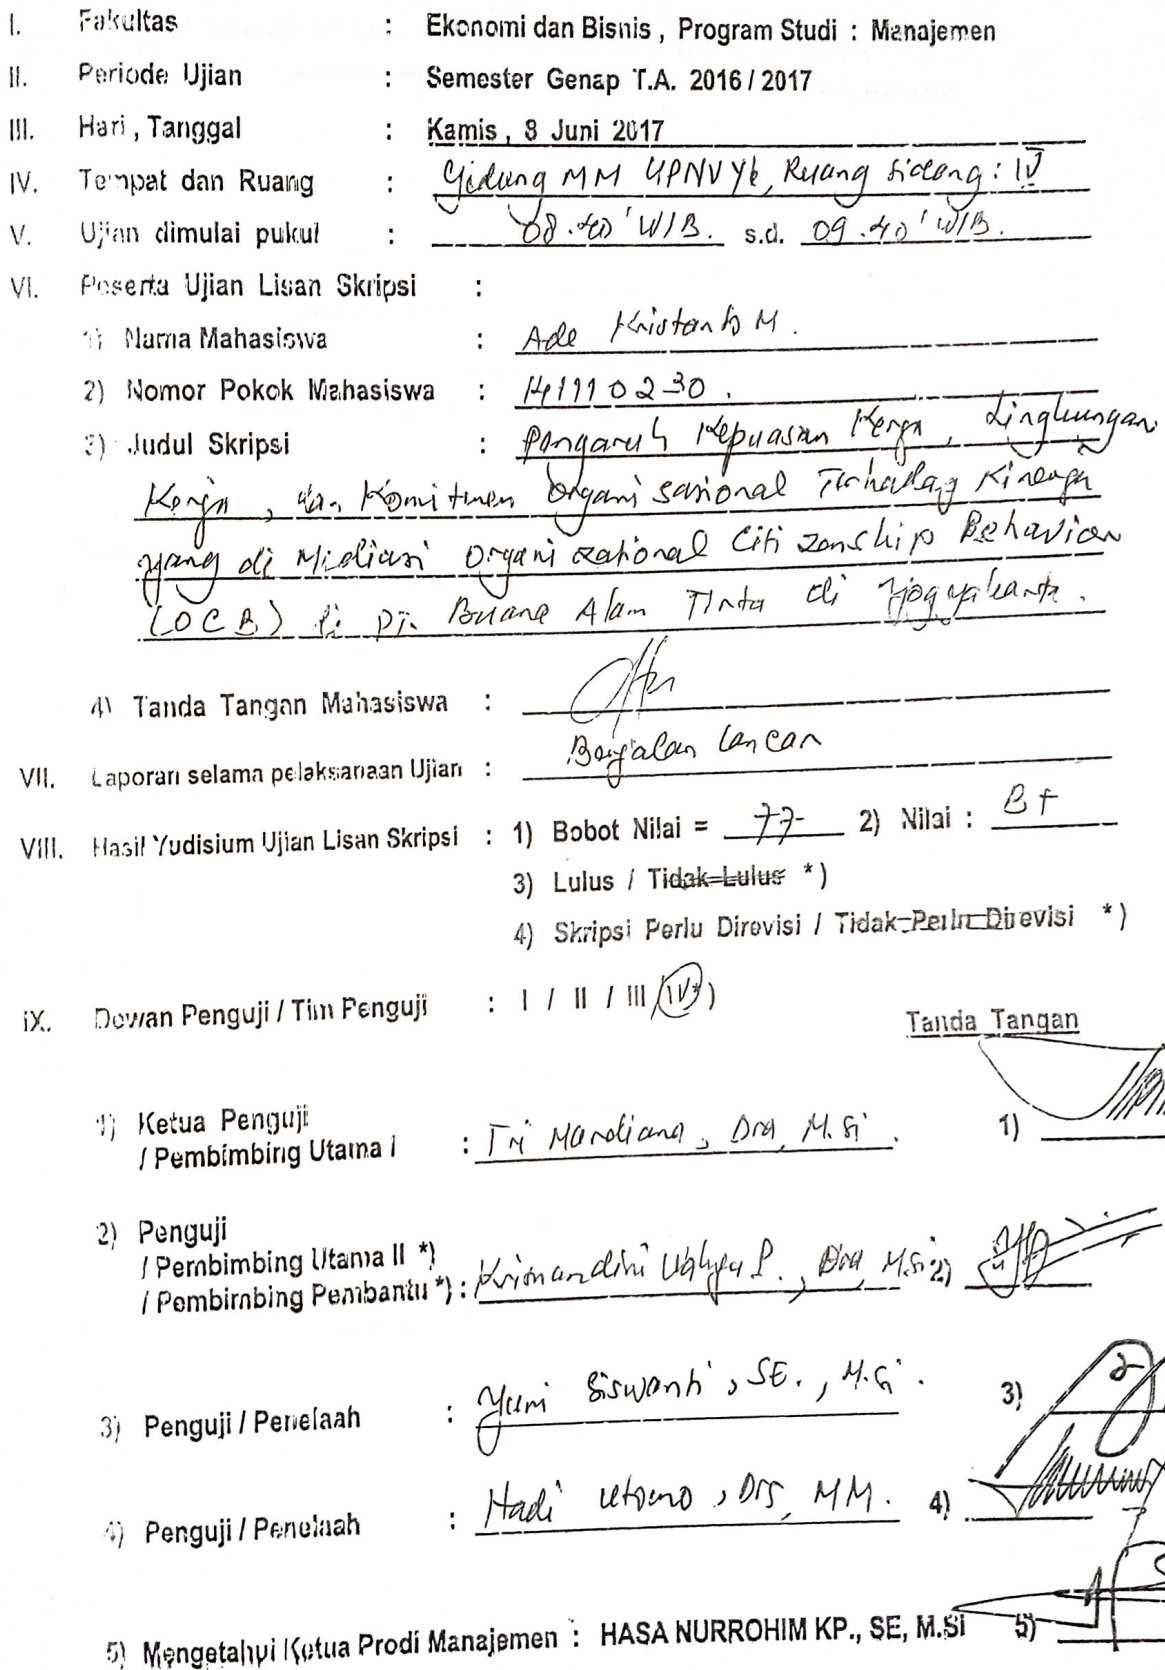 I. Fakultas : Ekonomi dan Bisnis , Program Studi : Manajemen
II. Periode Ujian : Semester Genap T.A. 2016 / 2017
III. Hari , Tanggal : Kamis , 8 Juni 2017
IV. Tempat dan Ruang : Gedung MM UPNVYk, Ruang Sidang : IV
V. Ujian dimulai pukul : 08.40 ' WIB. s.d. 09.40 ' WIB.
VI. Peserta Ujian Lisan Skripsi :
1) Nama Mahasiswa : Ade Kristanto M.
2) Nomor Pokok Mahasiswa : 141110230.
3) Judul Skripsi : Pengaruh Kepuasan Kerja, Lingkungan
Kerja, dan Komitmen Organisasional Terhadap Kinerja
yang di Mediasi Organizational Citizenship Behavior
(OCB) di PT. Buana Alam Tirta di Yogyakarta.
4) Tanda Tangan Mahasiswa :
VII. Laporan selama pelaksanaan Ujian : Berjalan lancar
VIII. Hasil Yudisium Ujian Lisan Skripsi : 1) Bobot Nilai = 77- 2) Nilai : B+
3) Lulus / Tidak Lulus *)
4) Skripsi Perlu Direvisi / Tidak Perlu Direvisi *)
IX. Dewan Penguji / Tim Penguji : I / II / III / IV *)
Tanda Tangan
1) Ketua Penguji
/ Pembimbing Utama I : Tri Mardiana, Dra, M.Si. 1)
2) Penguji
/ Pembimbing Utama II *)
/ Pembimbing Pembantu *) : Krisnandini Wahyu P., Dra, M.Si 2)
3) Penguji / Penelaah : Yuni Siswanti, SE., M.Si. 3)
4) Penguji / Penelaah : Hadi Utomo, Drs, MM. 4)
5) Mengetahui Ketua Prodi Manajemen : HASA NURROHIM KP., SE, M.Si 5)